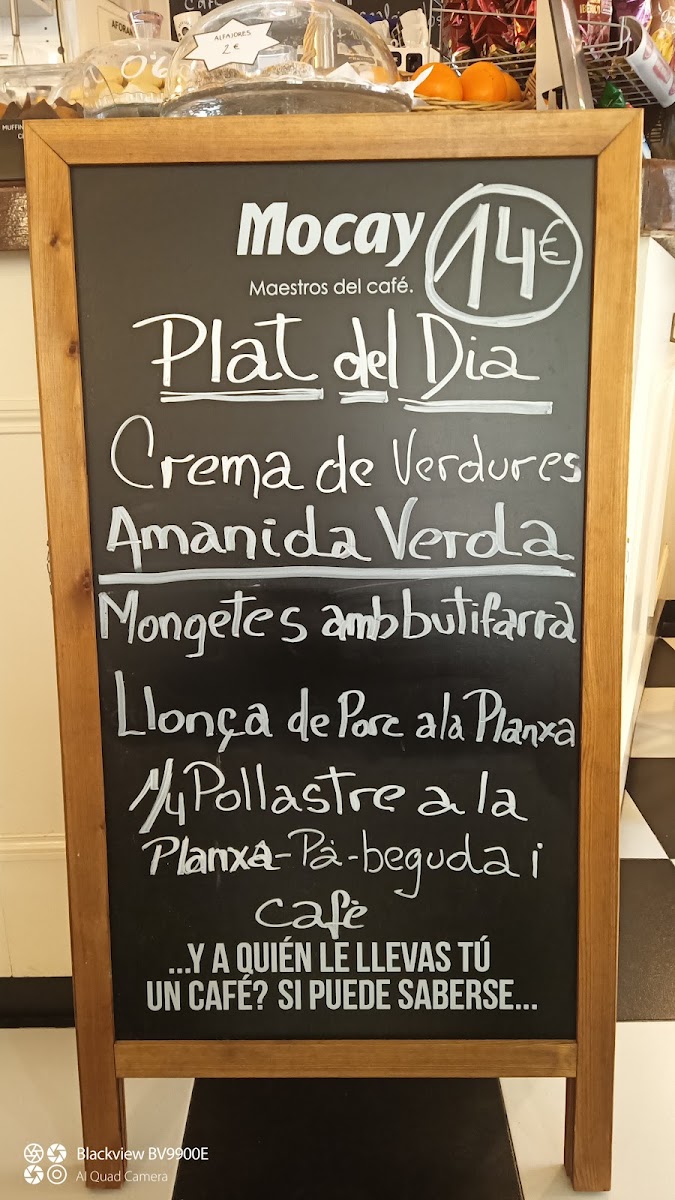 ALFAJORES
2€
Mocay
14€
Maestros del café.
Plat del Dia
Crema de Verdures
Amanida Verda
Mongetes amb butifarra
Llonça de Porc a la Planxa
1/4 Pollastre a la
Planxa-Pà-beguda i
cafè
...Y A QUIÉN LE LLEVAS TÚ
UN CAFÉ? SI PUEDE SABERSE...
Blackview BV9900E
AI Quad Camera